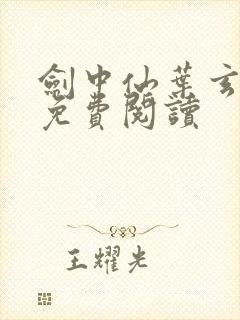 劍中仙葉玄
免費閱讀
王耀光